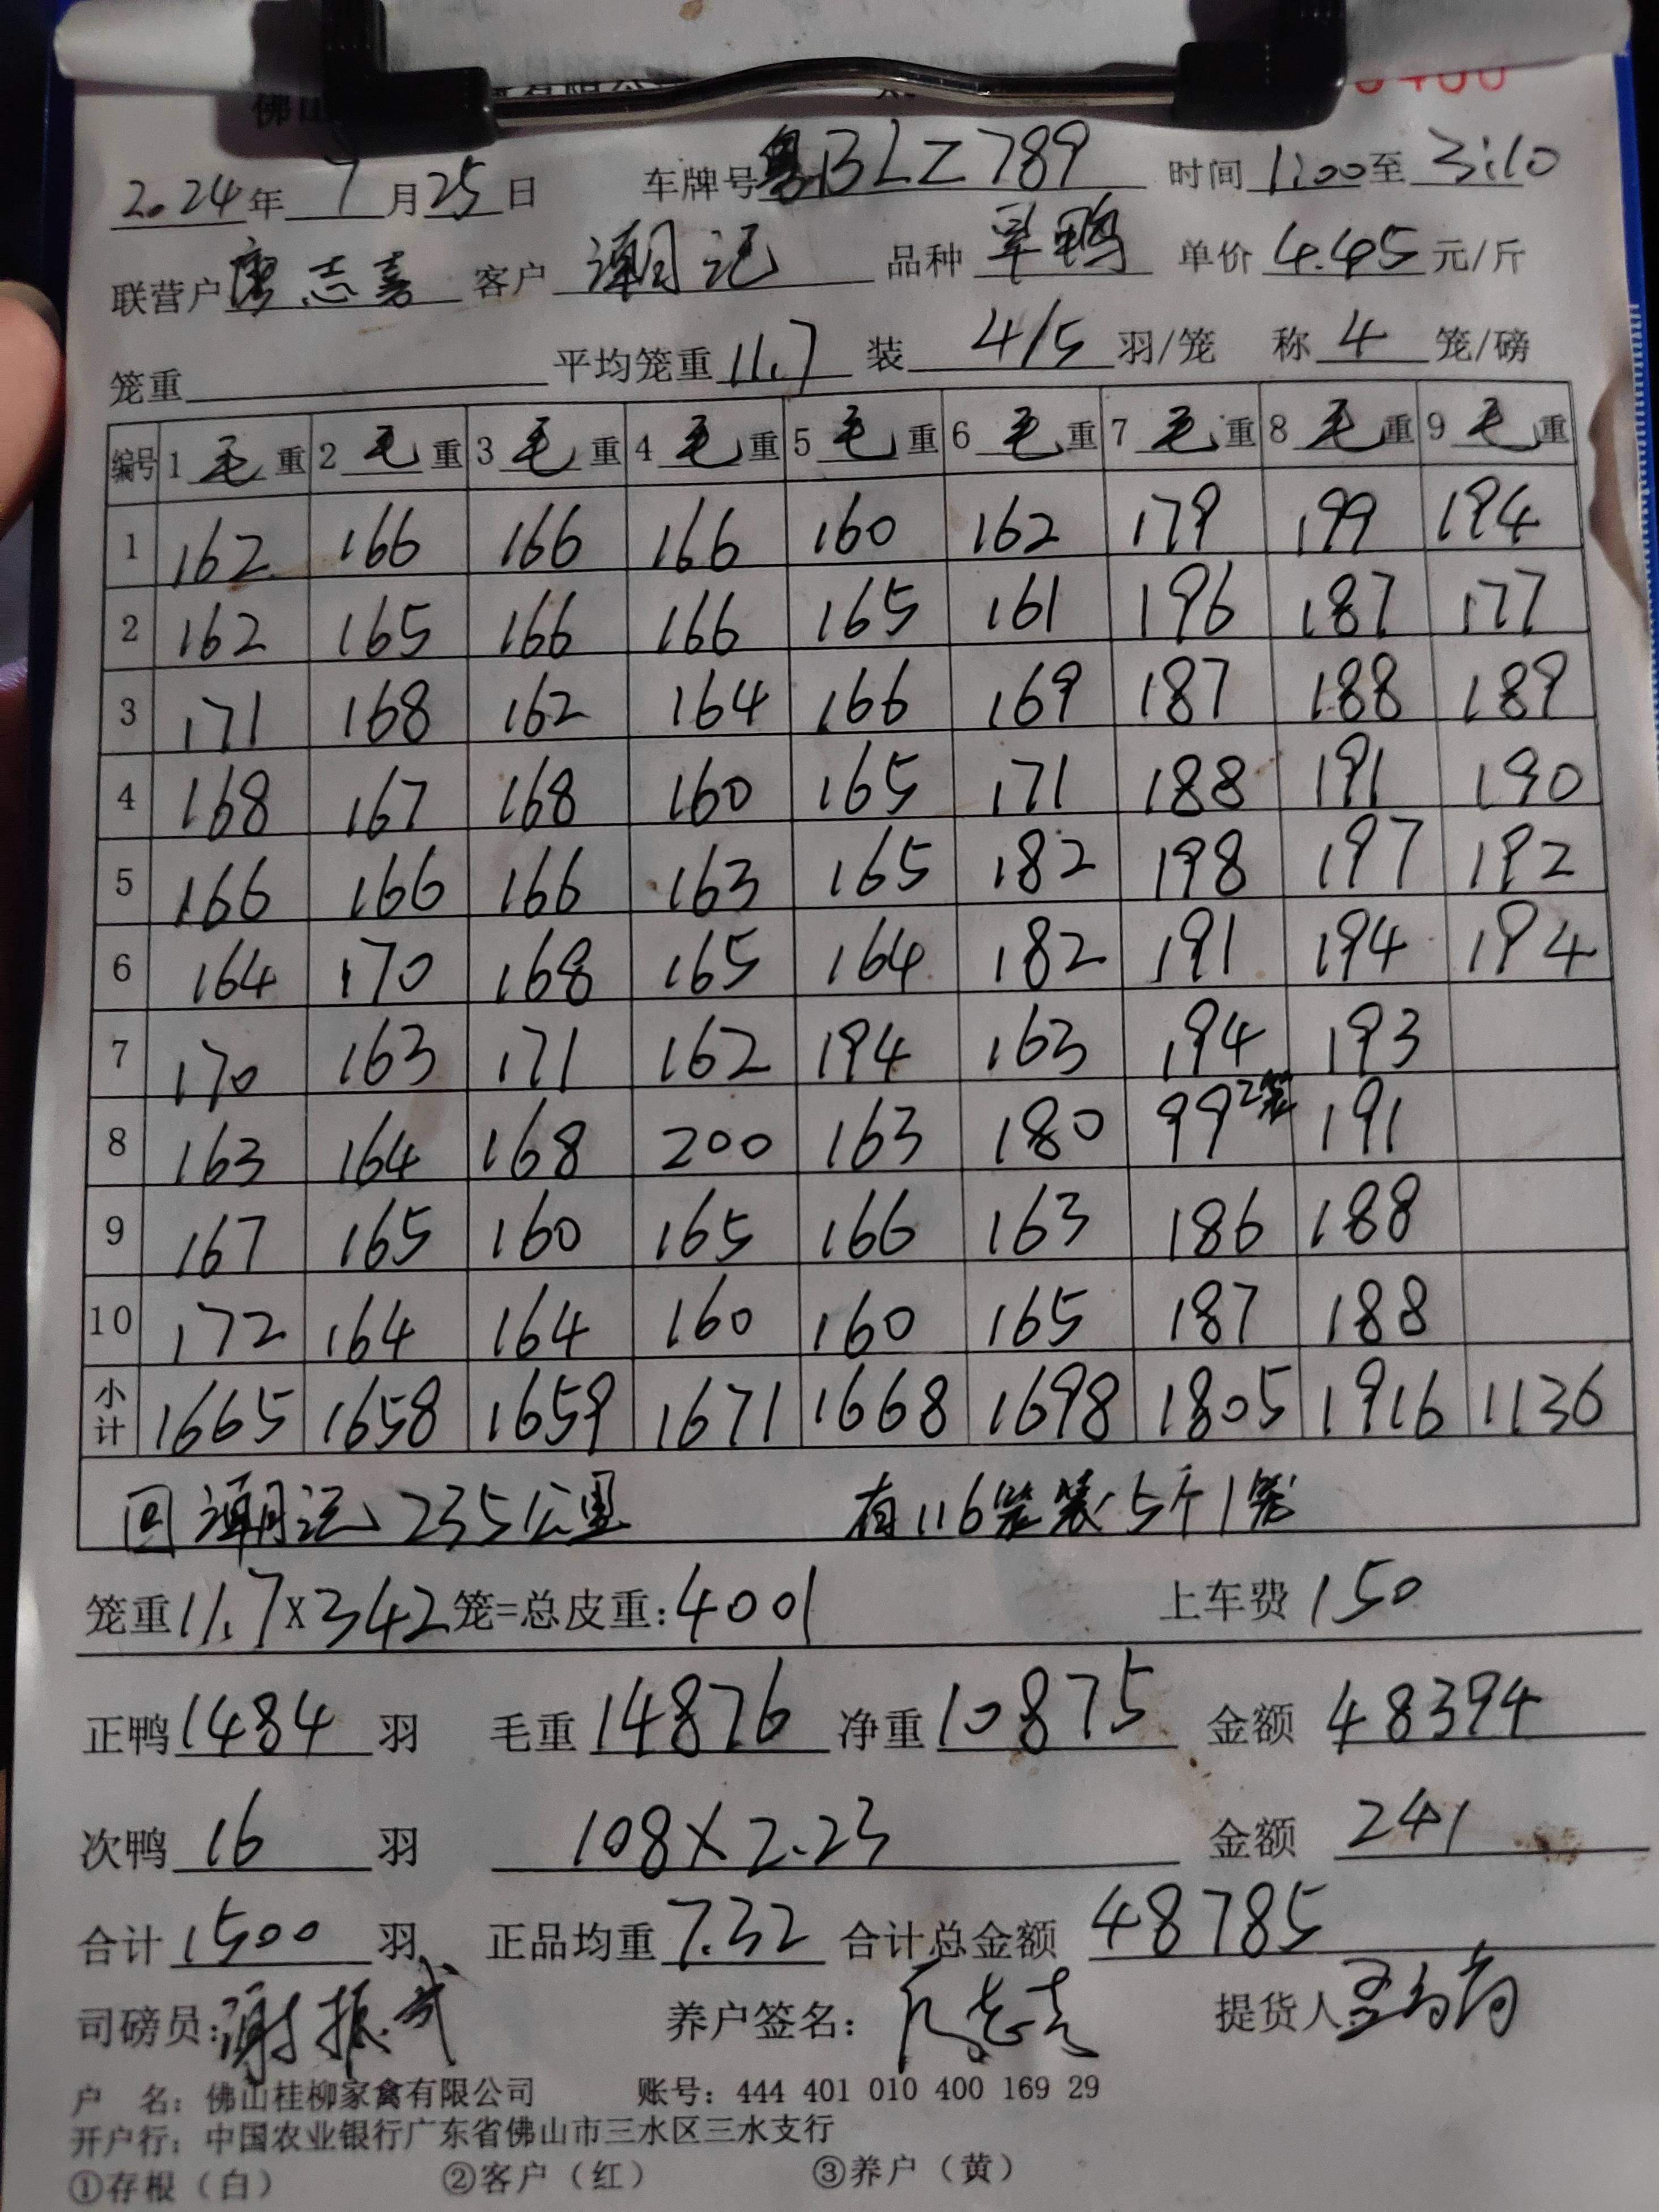 佛山
2024年7月25日 车牌号粤BLZ789 时间1:00至3:10
联营户廖志嘉 客户 潮记 品种 旱鸭 单价 4.45 元/斤
笼重 平均笼重11.7 装 4/5 羽/笼 称 4 笼/磅
编号 1毛重 2毛重 3毛重 4毛重 5毛重 6毛重 7毛重 8毛重 9毛重
1 162 166 166 166 160 162 179 199 194
2 162 165 166 166 165 161 196 187 177
3 171 168 162 164 166 169 187 188 189
4 168 167 168 160 165 171 188 191 190
5 166 166 166 163 165 182 198 197 192
6 164 170 168 165 164 182 191 194 194
7 170 163 171 162 194 163 194 193
8 163 164 168 200 163 180 99 2笼 191
9 167 165 160 165 166 163 186 188
10 172 164 164 160 160 165 187 188
小计 1665 1658 1659 1671 1668 1698 1805 1916 1136
回潮记 235公里 有116笼装5个1笼
笼重11.7×342笼=总皮重:4001 上车费150
正鸭1484羽 毛重14876 净重10875 金额 48394
次鸭16羽 108×2.23 金额 241
合计1500羽 正品均重7.32 合计总金额 48785
司磅员:谢振武 养户签名: 提货人
户 名:佛山桂柳家禽有限公司 账号:444 401 010 400 169 29
开户行:中国农业银行广东省佛山市三水区三水支行
①存根(白) ②客户(红) ③养户(黄)